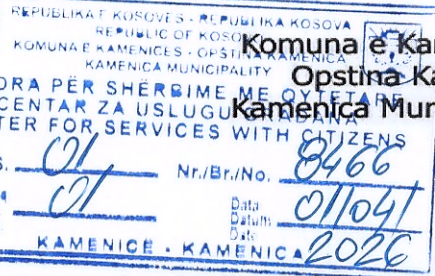 REPUBLIKA E KOSOVËS - REPUBLIKA KOSOVA
REPUBLIC OF KOSOV
KOMUNA E KAMENICËS - OPŠTINA KAMENICA
KAMENICA MUNICIPALITY
Komuna e Ka
Opstina Ka
Kamenica Mun
DRA PËR SHËRBIME ME QYTETARË
CENTAR ZA USLUGU
TER FOR SERVICES WITH CITIZENS
01 Nr./Br./No. 8466
01 Data Datum Date 01/04/
KAMENICË - KAMENICA 2026